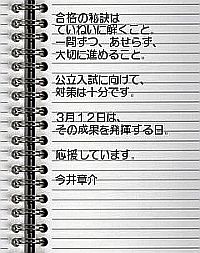 合格の秘訣は
ていねいに解くこと。
一問ずつ、あせらず、
大切に進めること。
公立入試に向けて、
対策は十分です。
３月１２日は、
その成果を発揮する日。
応援しています。
今井章介